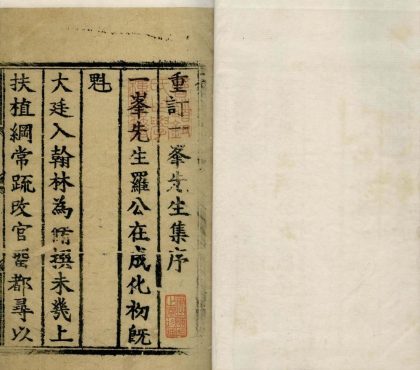 重訂一峯先生集序
一峯先生羅公在成化初旣
魁
大廷入翰林為脩撰未幾上
扶植綱常疏改官畱都尋以